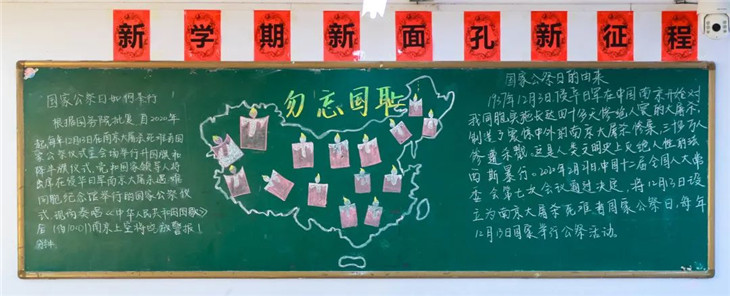 新学期新面孔新征程
勿忘国耻
国家公祭日如何举行
根据国务院批复 自2020年
起,每年12月13日在南京大屠杀死难者国
家公祭仪式主会场举行升国旗和
降半旗仪式,党和国家领导人将
出席在侵华日军南京大屠杀遇难
同胞纪念馆举行的国家公祭仪
式,现场奏唱《中华人民共和国国歌》
后(10:01)南京上空将也拉警报1
国家公祭日的由来
1937年12月13日,侵华日军在中国南京开始对
我同胞实施长达四十多天惨绝人寰的大屠杀,
制造了震惊中外的南京大屠杀惨案,三十万人
惨遭杀戮,这是人类文明史上灭绝人性的法
西斯暴行。2020年2月27日,中国十二届全国人大常
委会第七次会议通过决定,将12月13日设
立为南京大屠杀死难者国家公祭日,每年
12月13日国家举行公祭活动。